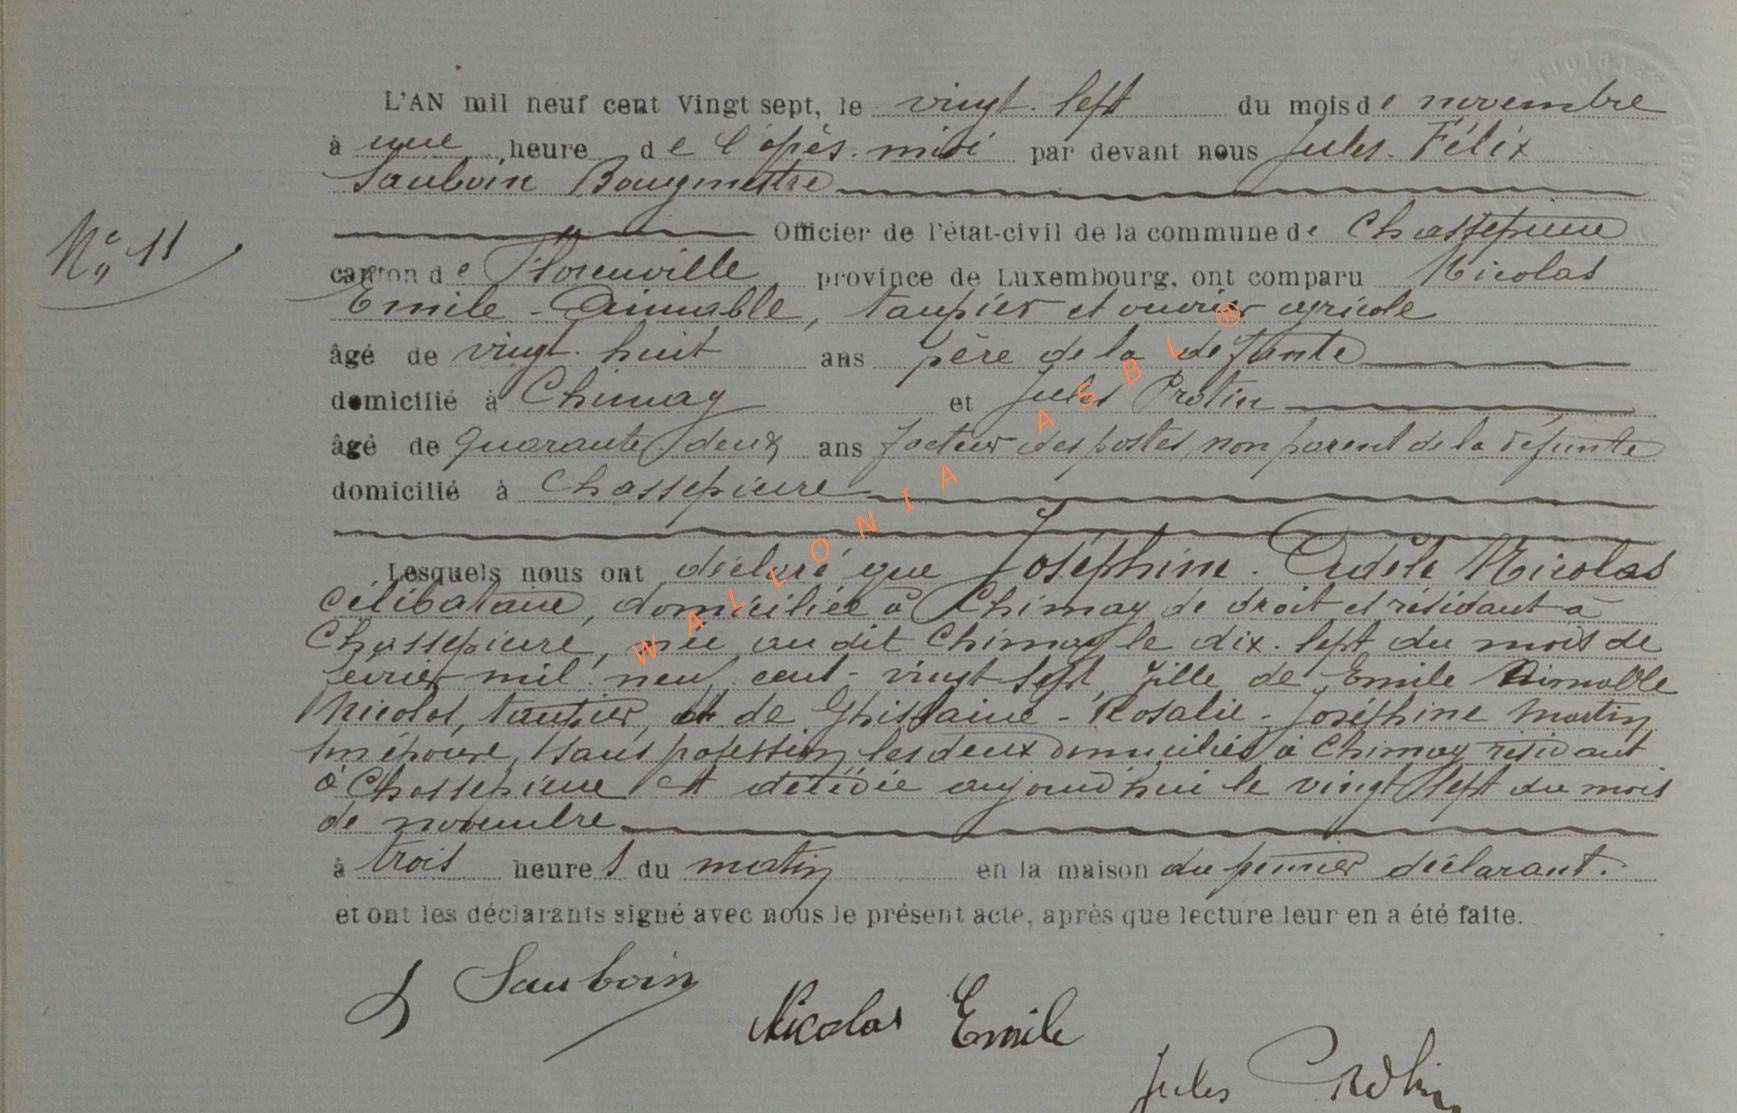 L'AN mil neuf cent Vingt sept, le vingt-sept du mois de novembre
à une heure de l'après-midi par devant nous Jules-Félix
Sauboin Bourgmestre
Officier de l'état-civil de la commune de Chassepierre
No 11
canton de Florenville province de Luxembourg, ont comparu Nicolas
Emile-Aimable, taupier et ouvrier agricole
âgé de vingt-huit ans père de la défunte
domicilié à Chimay et Jules Protin
âgé de quarante deux ans facteur des postes, non parent de la défunte
domicilié à Chassepierre
Lesquels nous ont déclaré que Joséphine-Adèle Nicolas
célibataire, domiciliée à Chimay de droit et résidant à
Chassepierre, née au dit Chimay le dix-sept du mois de
février mil neuf cent-vingt sept, fille de Emile Aimable
Nicolas, taupier, et de Ghislaine-Rosalie-Joséphine Martin
son épouse, sans profession, les deux domiciliés à Chimay résidant
à Chassepierre et décédée aujourd'hui le vingt sept du mois
de novembre
à trois heures du matin en la maison du premier déclarant.
et ont les déclarants signé avec nous le présent acte, après que lecture leur en a été faite.
J Sauboin
Nicolas Emile
Jules Protin
WALLONIA ASBL ®